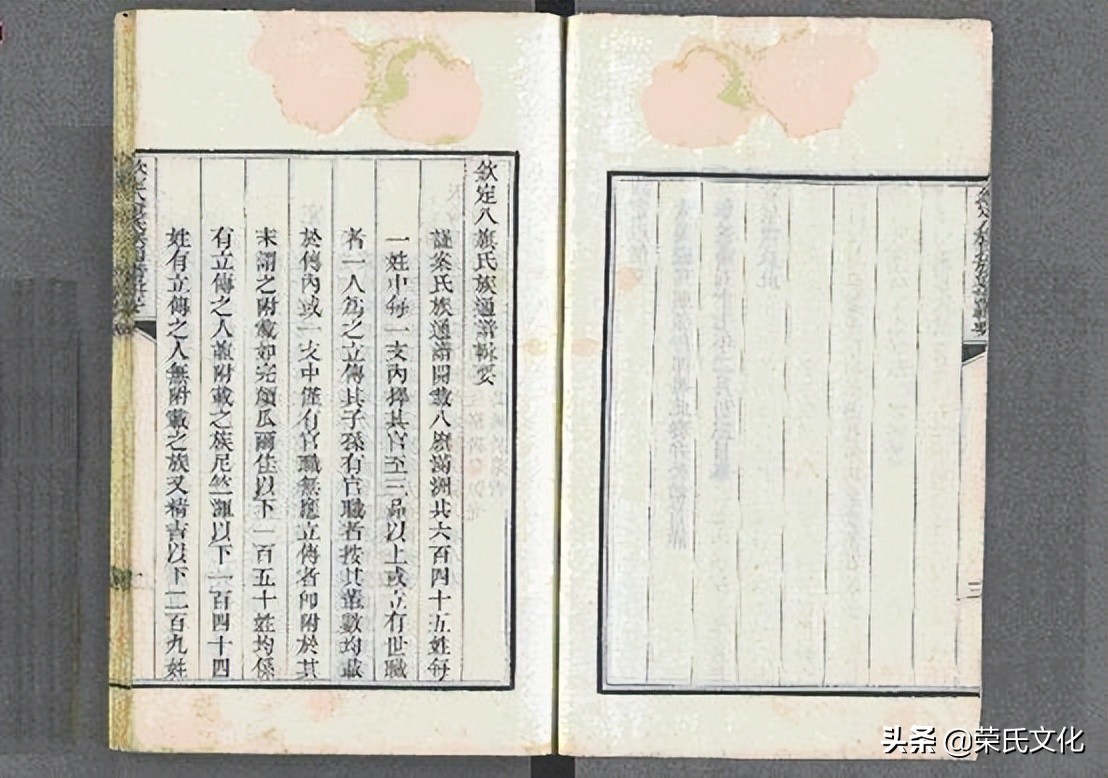 欽定八旗氏族通譜輯要
謹案氏族通譜開載八旗滿洲共六百四十五姓每
一姓中每一支內擇其官至三品以上或立有世職
者一人為之立傳其子孫有官職者按其輩數均載
於傳內或一支中僅有官職無應立傳者卽附於其
末謂之附載如完顏瓜爾佳以下一百五十姓均係
有立傳之人兼附載之族尼竺渾以下一百四十四
姓有立傳之人無附載之族又精吉以下二百九姓
三
头条 @荣氏文化